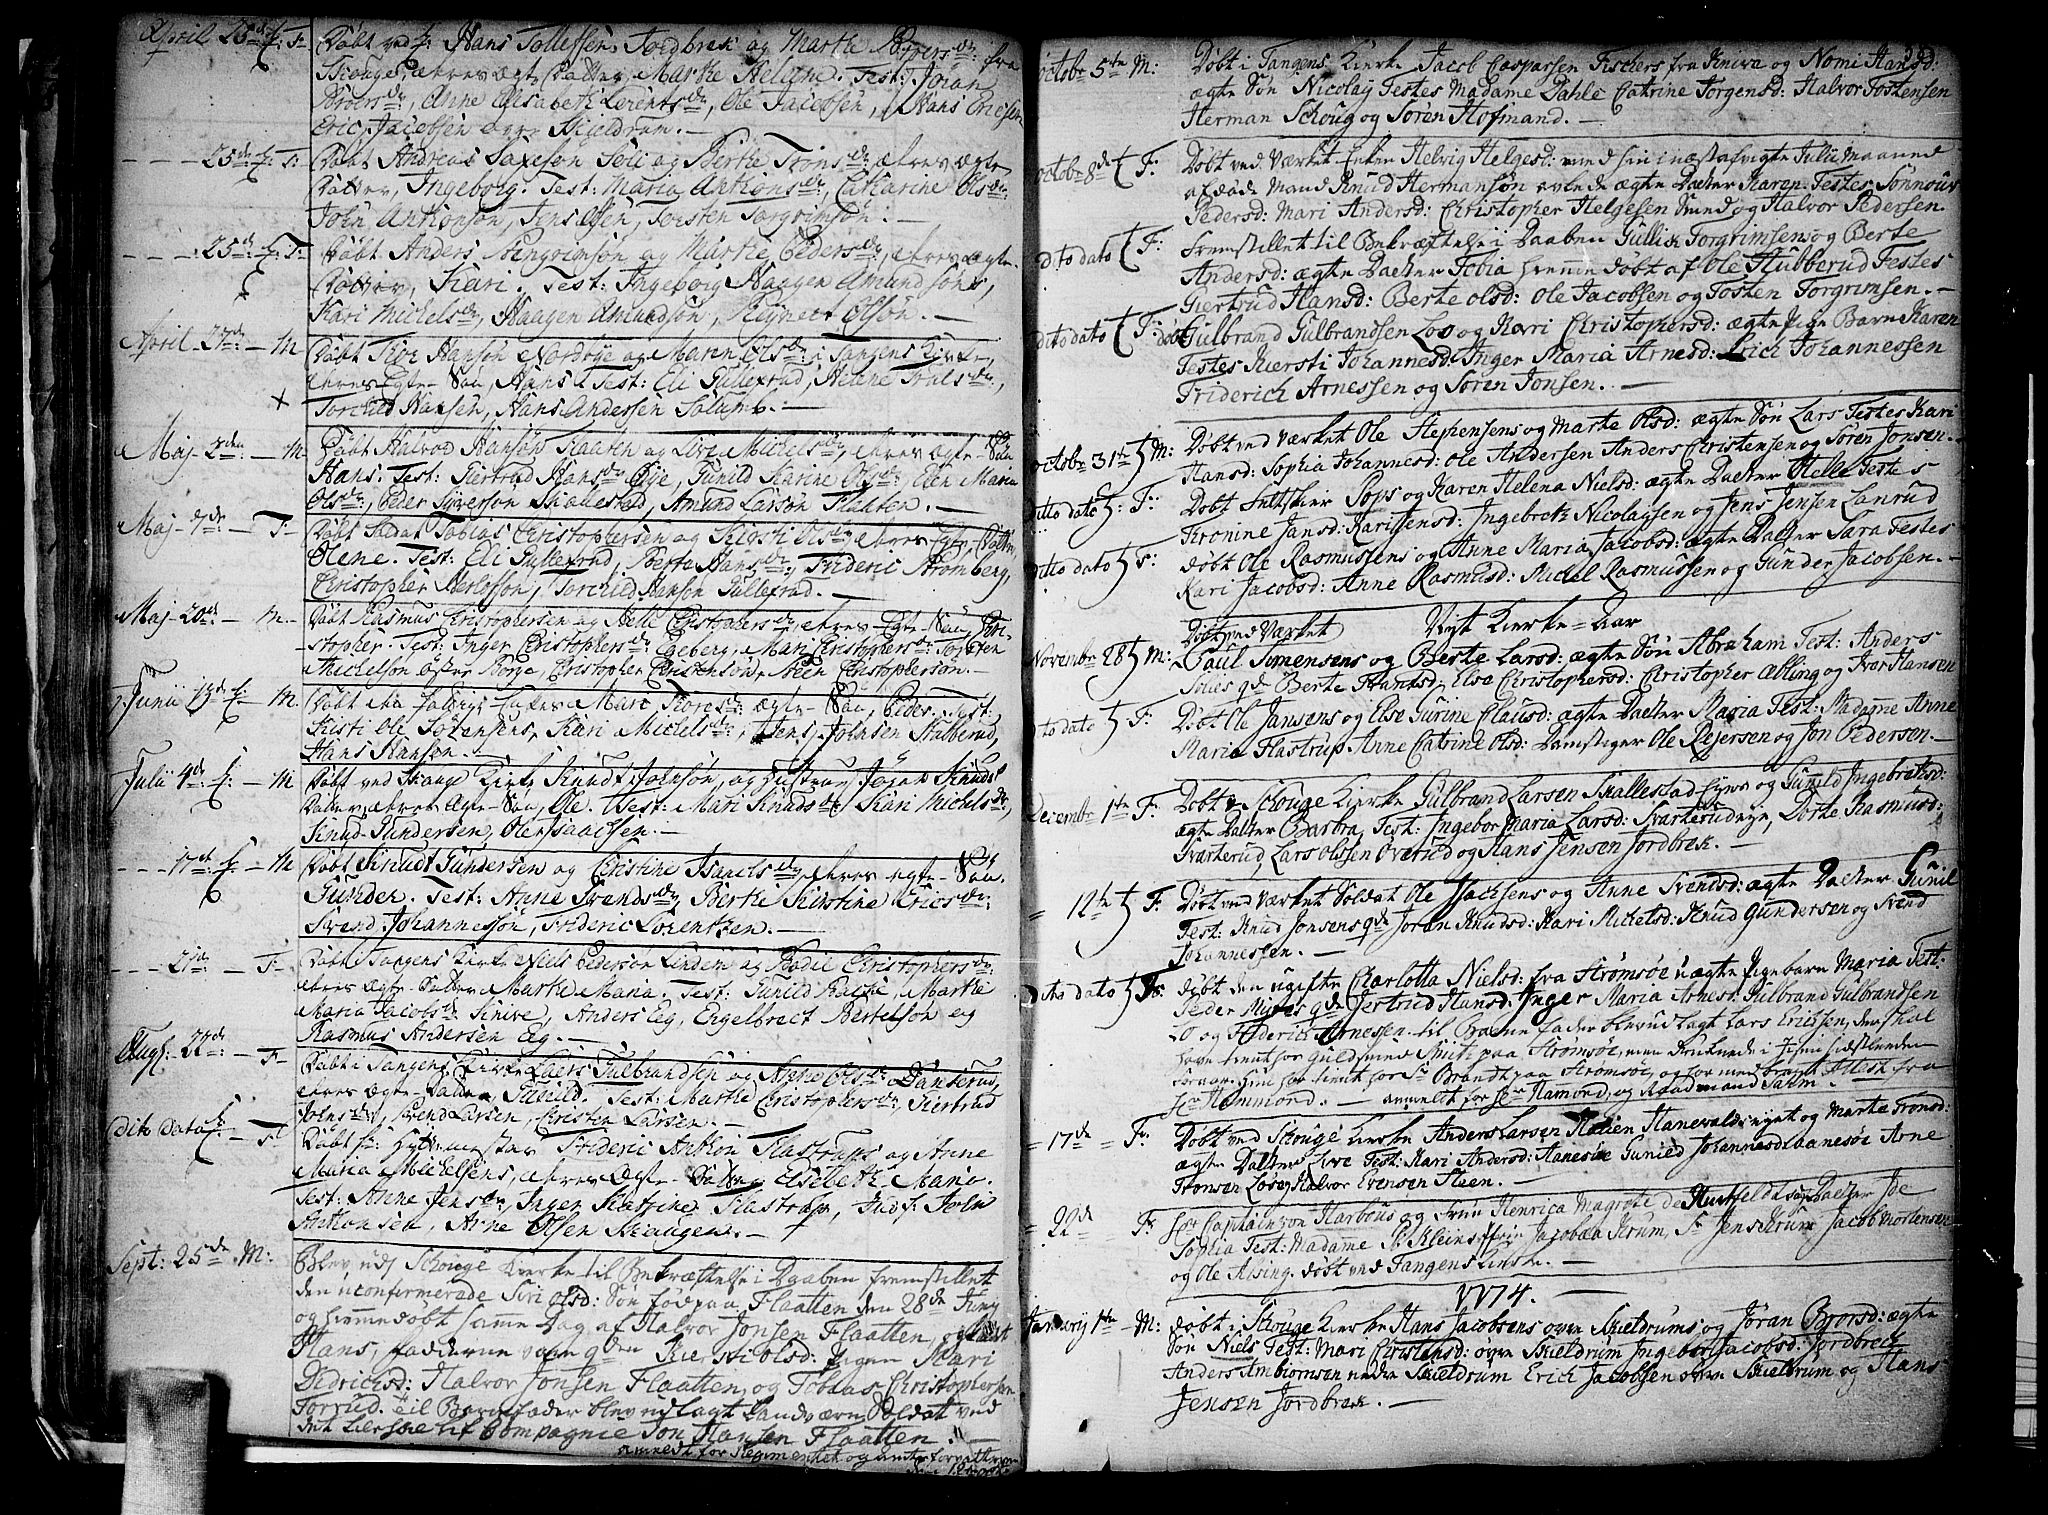 April 25de f: F
Døbt ved f: Hans Tollefsen Jordbrek og Marthe Brorsdr: fra
Skouge, ehres ægte Datter, Marthe Helene. Test: Joran
Broersdr:, Anne Elisabeth Lorentsdr, Ole Jacobsen, Hans Ericsen
Eric Jacobsen øvre Skjeldrum.
25de f: F:
Døbt Andreas og Berthe Trons dr, ehres ægte
Datter, Ingeborg. Test: Maria Anthonsdr, Catharine Olsdr:
John Anthonsøn, Jens Olsen, Torsten Torgrimsøn.
25de f: F:
Døbt Anders og Marthe Pedersdr, ehres Ægte
Datter, Kari. Test: Ingeborg Haagen Amundsøns,
Kari Michelsdr, Haagen Amundsøn, Reynert Olsøn.
April 27de: M
Døbt Tior Hansøn Nordbye og Maren Olsdr: i Tangens Kirke,
ehres Ægte Søn, Hans. Test: Eli Gullexrud, Helene Trulsdr,
Torchild Hansen, Hans Andersen Solumb.
Maj 2den M
Døbt Halvor Hansøn Flaaten og Live Michelsdr, ehres Ægte Søn
Hans. Test: Giertrud Hansdr Øye, Gunild Karine Olsdr: Elen Maria
Olsdr, Peder Syversøn Skallestad, Amund Larsøn Flaaten.
Maj 7de: F
Døbt Soldat Tobias Christophersen og Kirsti Olsdr, ehres Ægte Datter,
Olene. Test: Eli Gullexrud, Berta Hansdr, Frideric Strømberg,
Christopher Herlofsøn, Torchild Hansøn Gullexrud.
Maj 20de: M
Døbt Rasmus Christophersen og Helle Christophersdr, ehres Ægte Søn, Christopher.
Test: Inger Christophersdr Egeberg, Mari Christophersdr: Torsten
Michelsøn Berge, Christopher Christensøn, Neri Christophersøn.
Junii 13de f: M
Mari Toresdr: ægte Søn, Peder. Test:
Kisti Ole Sørensens, Kari Michelsdr:, Jens Johnsen Stalberud,
Hans Hansen.
Julii 4de f: M
Døbt ved Skouge Kirke Knud Johnsøn, og Hustrue Joren Knuds
Datter, ehres Ægte Søn, Ole. Test: Mari Knudsdr, Kari Michelsdr,
Knud Gundersen, Ole Isaachsen.
17de f: M
Døbt Knudt Gundersen og Christine Isaachsdr, ehres ægte Søn.
Gunder. Test: Anne Svendsdr, Berthe Kirstine Ericsdr:
Svend Johannessøn, Frideric Lorentzen.
21de: F
Døbt i Tangens Kirke Niels Pedersøn Linden og Bodil Christophersdr:
ehres ægte Datter Marthe Maria. Test: Gunild Marthe
Maria Jacobsdr: Knive, Anders Eeg, Engelbrect Bertelsøn og
Rasmus Andersen Eeg.
Augs: 22de: F
Døbt i Tangens Kirke Laers Gulbrandsen og Anne Olsdr Danserud,
ehres ægte Datter, Gunild. Test: Marthe Christophersdr, Giertrud
Johnsdr, Svend Larsen, Christen Larsen.
Dito Dato f: F
Døbt Sr: Frideric Anthon Flastrups og Anne
Maria Michelsens, ehres Ægte Datter Elisabeth Maria.
Test: Anne Jensdr, Inger Kathrine Flastrup, Judf: John
Anthonsen, Arne Olsen Skaugen.
Sept: 25de M:
Blev udj Schouge Kierke til Bekræftelse i Daaben fremstillet
den uconfirmerade Siri Olsd: Søn født paa Flaatten den 28de Junij
og hiemmedøbt samme Dag af Halvor Jonsen Flaatten, og kaldt
Hans, fadderne vare qden Kiersti Olsd: Pigen Mari
Didrichsd: Halvor Jonsen Flaatten, og Tobias Christophersen
Torrud. til Barnefader blev udlagt Landværn Soldat ved
det Liersche Lif Compagnie Jon Hansen Flaatten.
anmeldt for Regimentet og Amtsforvalteren
octobr 5te M:
Døbt i Tangens Kierke Jacob Casparsen Fischers fra Kniva og Nomi Hansd:
ægte Søn Nicolay Testes Madame Dahle Catrine Jorgensd: Halvor Tostensen
Herman Schoug og Søren Hofmand.
octobr 8de F:
Døbt ved Værket Enken Helvig Helgesd: med sin i næst afvigte Julii Maaned
afdøde Mand Knud Hermansøn avlede ægte Datter Karen. Testes Sønnouv
Pedersd: Mari Andersd: Christopher Helgesen Sund og Halvor Pedersen.
dito dato F:
Fremstillet til Bekræftelse i Daaben Gullich Torgrimsens og Berte
Andersd: ægte Datter Tobia hiemme døbt af Ole Hubberud Testes
Giertrud Hansd: Berte Olsd: Ole Jacobsen og Tosten Torgrimsen.
dito dato F: døbt
Gulbrand Gulbrandsen Loo og Kari Christophersd: ægte Pige Barn Karen
Testes Kiersti Johannesd: Inger Maria Arnesd: Erich Johannessen
Friderich Arnessen og Søren Jonsen.
octobr 31te M:
Døbt ved Værket Ole Stephensens og Marte Olsd: ægte Søn Lars Testes Kari
Hansd: Sophia Johannesd: Ole Andersen Anders Christensen og Søren Jonsen.
ditto dato F:
Døbt Sops og Karen Helena Nielsd: ægte Datter Helle Testes
Tronine Jansd: Kari Jensd: Ingebreth Nicolaysen og Jens Jensen Lanrud
ditto dato F:
døbt Ole Rasmussens og Anne Maria Jacobsd: ægte Datter Sara Testes
Kari Jacobsd: Anne Rasmusd: Michel Rasmussen og Gunder Jacobsen.
Døbt ved Værket Nyt Kierke-Aar
Novembr 28 M:
Paul Simensens og Berte Larsd: ægte Søn Abraham Test: Anders
qde Berte Frantsd, Else Christophersd: Christopher Ebling og Ivar Hansen
dito dato F:
Døbt Ole Jansens og Else Gurine Clausd: ægte Datter Maria Test: Madame Anne
Maria Flastrup Anne Catrine Olsd: Damstiger Ole Rejersen og Jon Pedersen.
Decembr 1te F:
Døbt v Schouge Kierke Gulbrand Larsen Skallestad og Gunild Ingebrethsd:
ægte Datter Barbra, Test: Ingebor Maria Larsd: Svarterudeye, Dorte Rasmusd:
Svarterud, Lars Olssen Overud og Hans Jensen Jordbrek.
12te F:
Døbt ved Værket Soldat Ole Isachsens og Anne Svendsd: ægte Datter Gunil
Test: Knud Jonsens qde Joran Knudsd: Kari Michelsd: Knud Gundersen og Svend
Johannessen.
dito dato F:
døbt den ugifte Charlotta Nielsd: fra Strømsøe uægte Pigebarn Maria Test:
Peder Myhres qde Jertrud Hansd: Inger Maria Arnesd: Gulbrand Gulbrandsen
Lo og Friderich Arnessen. til Barne fader blev udlagt Lars Ericssen, den skal
have tient for Guldsmed Smit paa Strømsøe, men druknede i Pigen sidstleden
foraar. Hun har tient hos Sr Brandt paa Strømsøe, og har medbragt Attest fra
Hr Hammond. anmeldt for Hr Hamond, og Raadmand Sahm.
17de F:
Døbt ved Schouge Kierke Anders Larsen Hanevalds nyt og Marte Tronsd:
ægte Datter Live Test: Kari Andersd: Hanesøe Gunild Johannesd Haanesøe Arne
Tronsen Løse, Halvor Evensen Steen.
22de F:
Hr Captain von Harbous og Frue Henrica Magrete de Huitfeldts Datter Ide
Sophia Test: Madamme Kleins Jacobæa Krum, Sr Jens Krum Jacob Mortensen
og Ole Aising. døbt ved Tangens Kirke.
1774.
January 1te M:
døbt i Schouge Kierke Hans Jacobsens øvre Skieldrums og Jøran Brorsd: ægte
Søn Niels Test: Mari Christensd: øvre Skieldrum Ingebor Jacobsd: Jordbreck
Anders Ambiornsen nedre Skieldrum Erich Jacobsen øvre Skieldrum og Hans
Jensen Jordbrek.